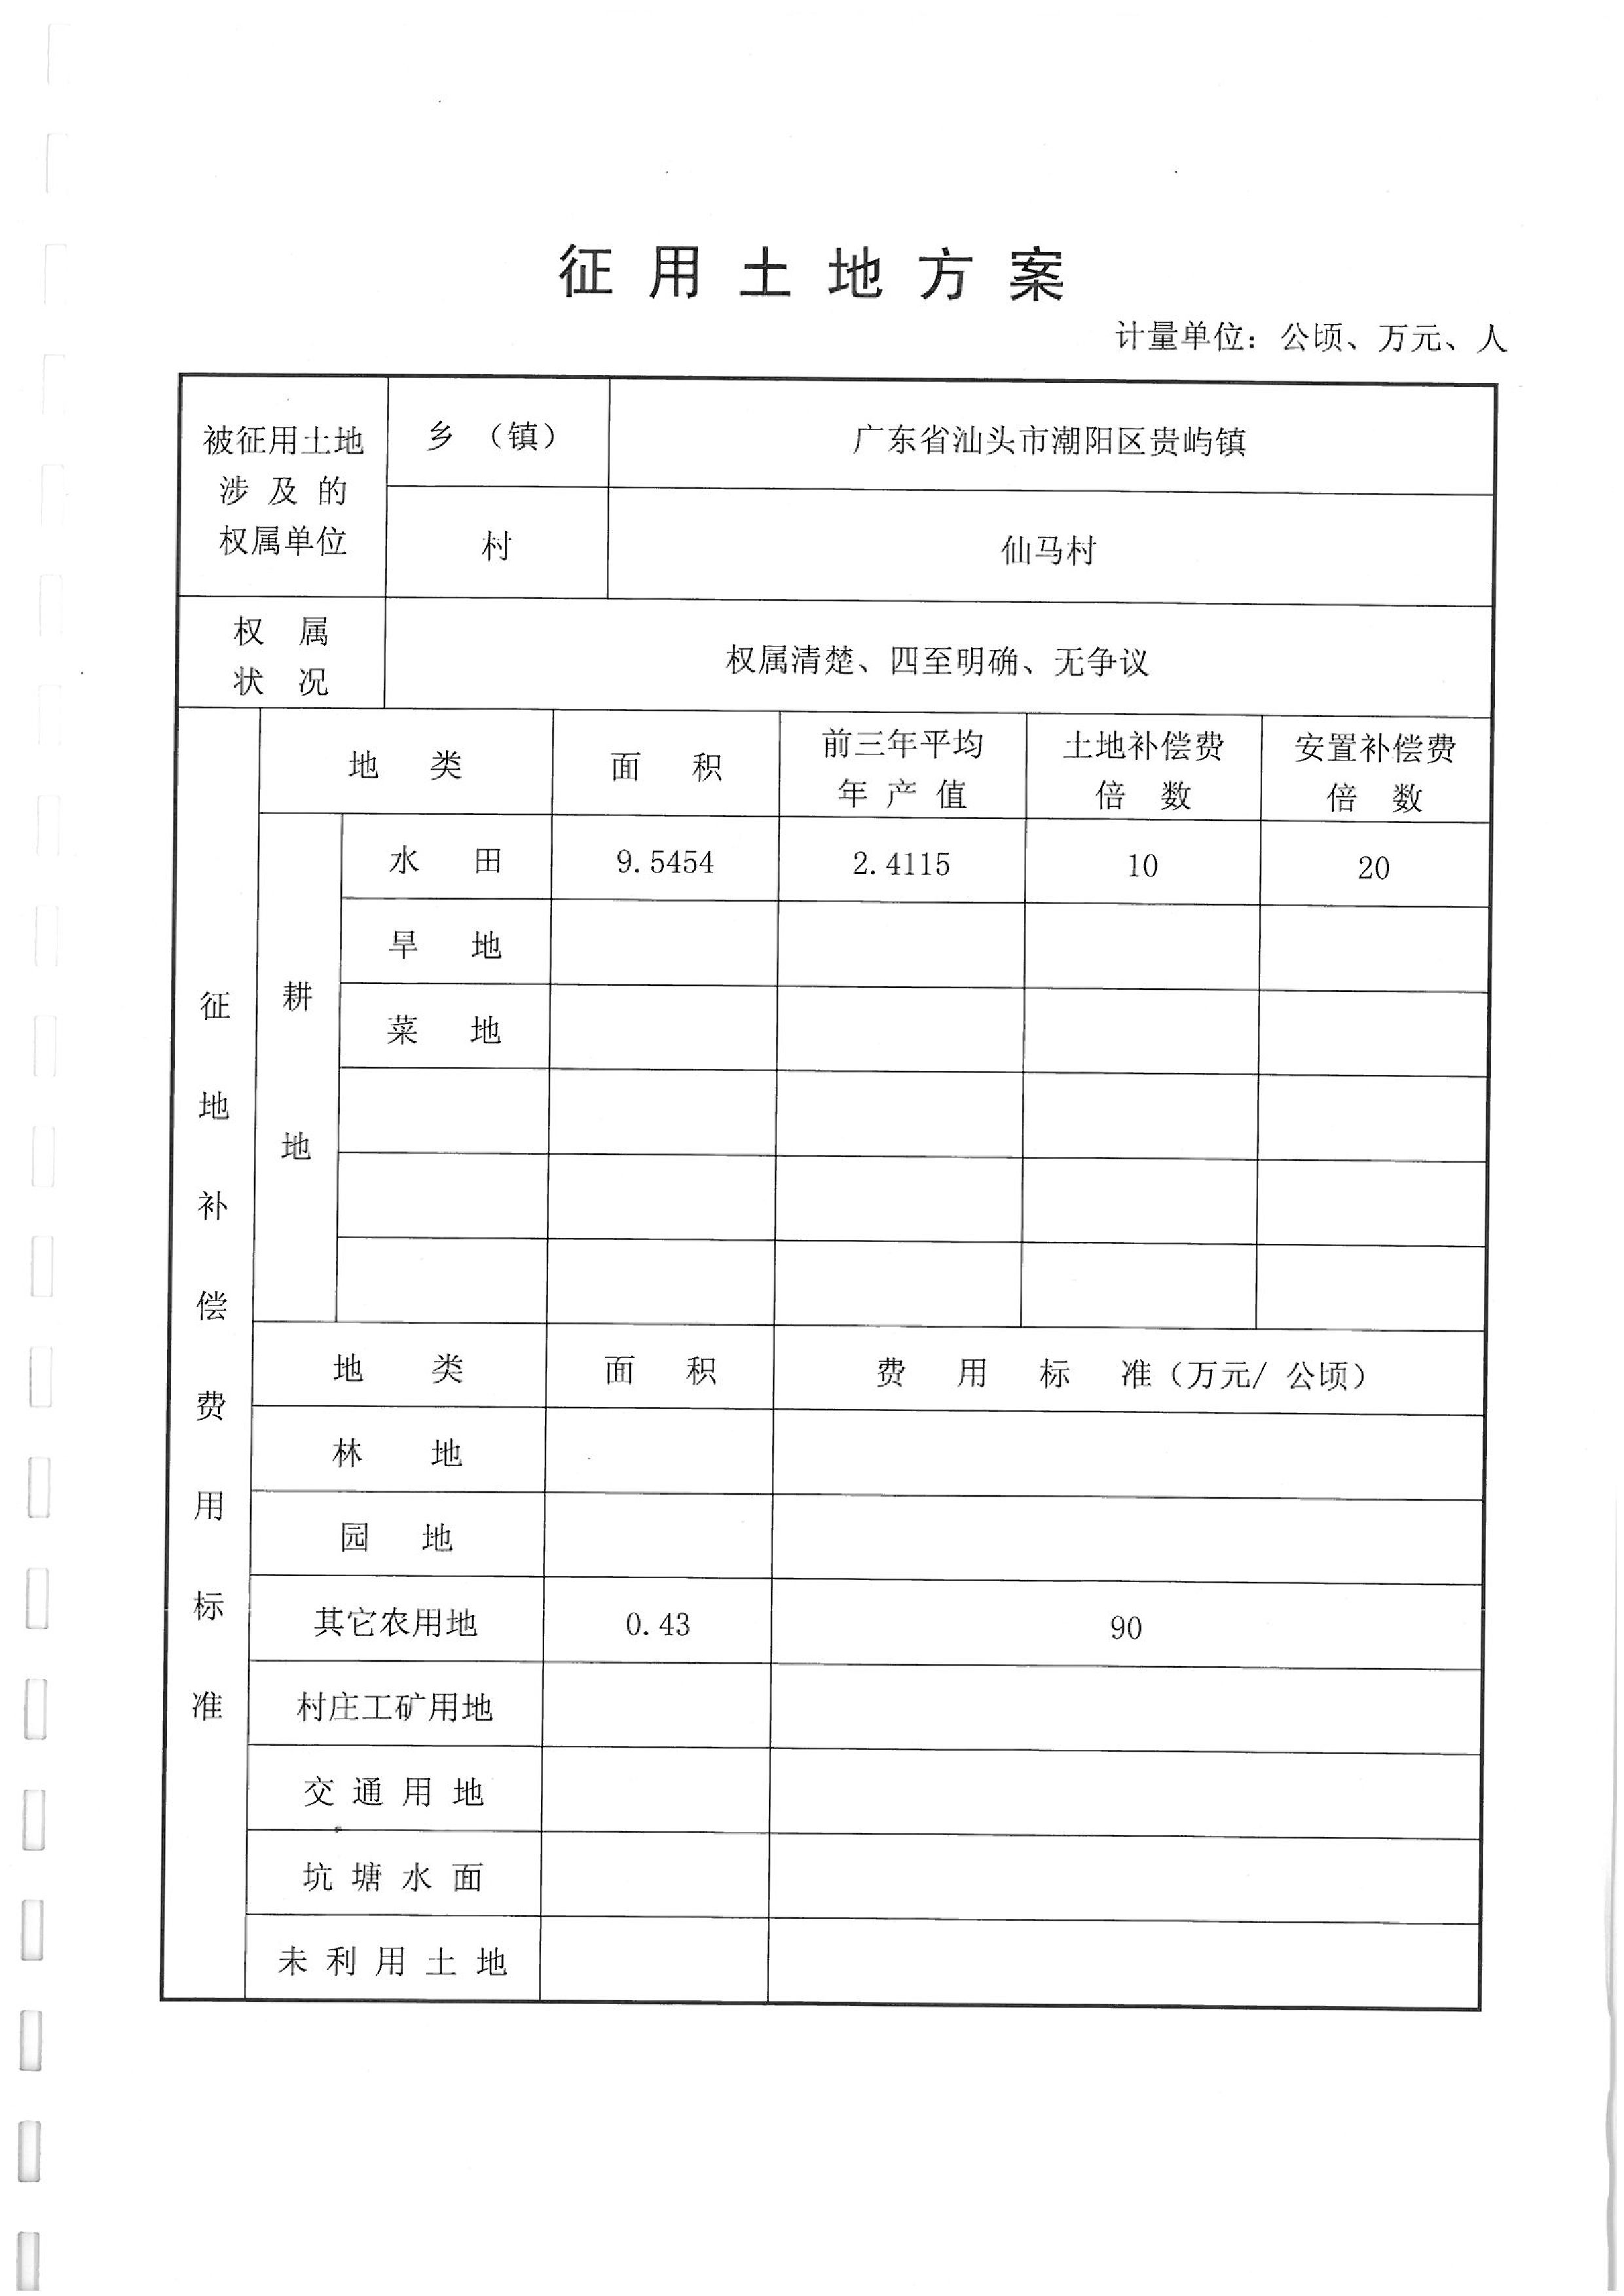 征用土地方案
计量单位：公顷、万元、人
被征用土地
涉及的
权属单位
乡（镇）
广东省汕头市潮阳区贵屿镇
村
仙马村
权属
状况
权属清楚、四至明确、无争议
征地补偿费用标准
地类
面积
前三年平均
年产值
土地补偿费
倍数
安置补偿费
倍数
耕地
水田
9.5454
2.4115
10
20
旱地
菜地
地类
面积
费用标准（万元/ 公顷）
林地
园地
其它农用地
0.43
90
村庄工矿用地
交通用地
坑塘水面
未利用土地